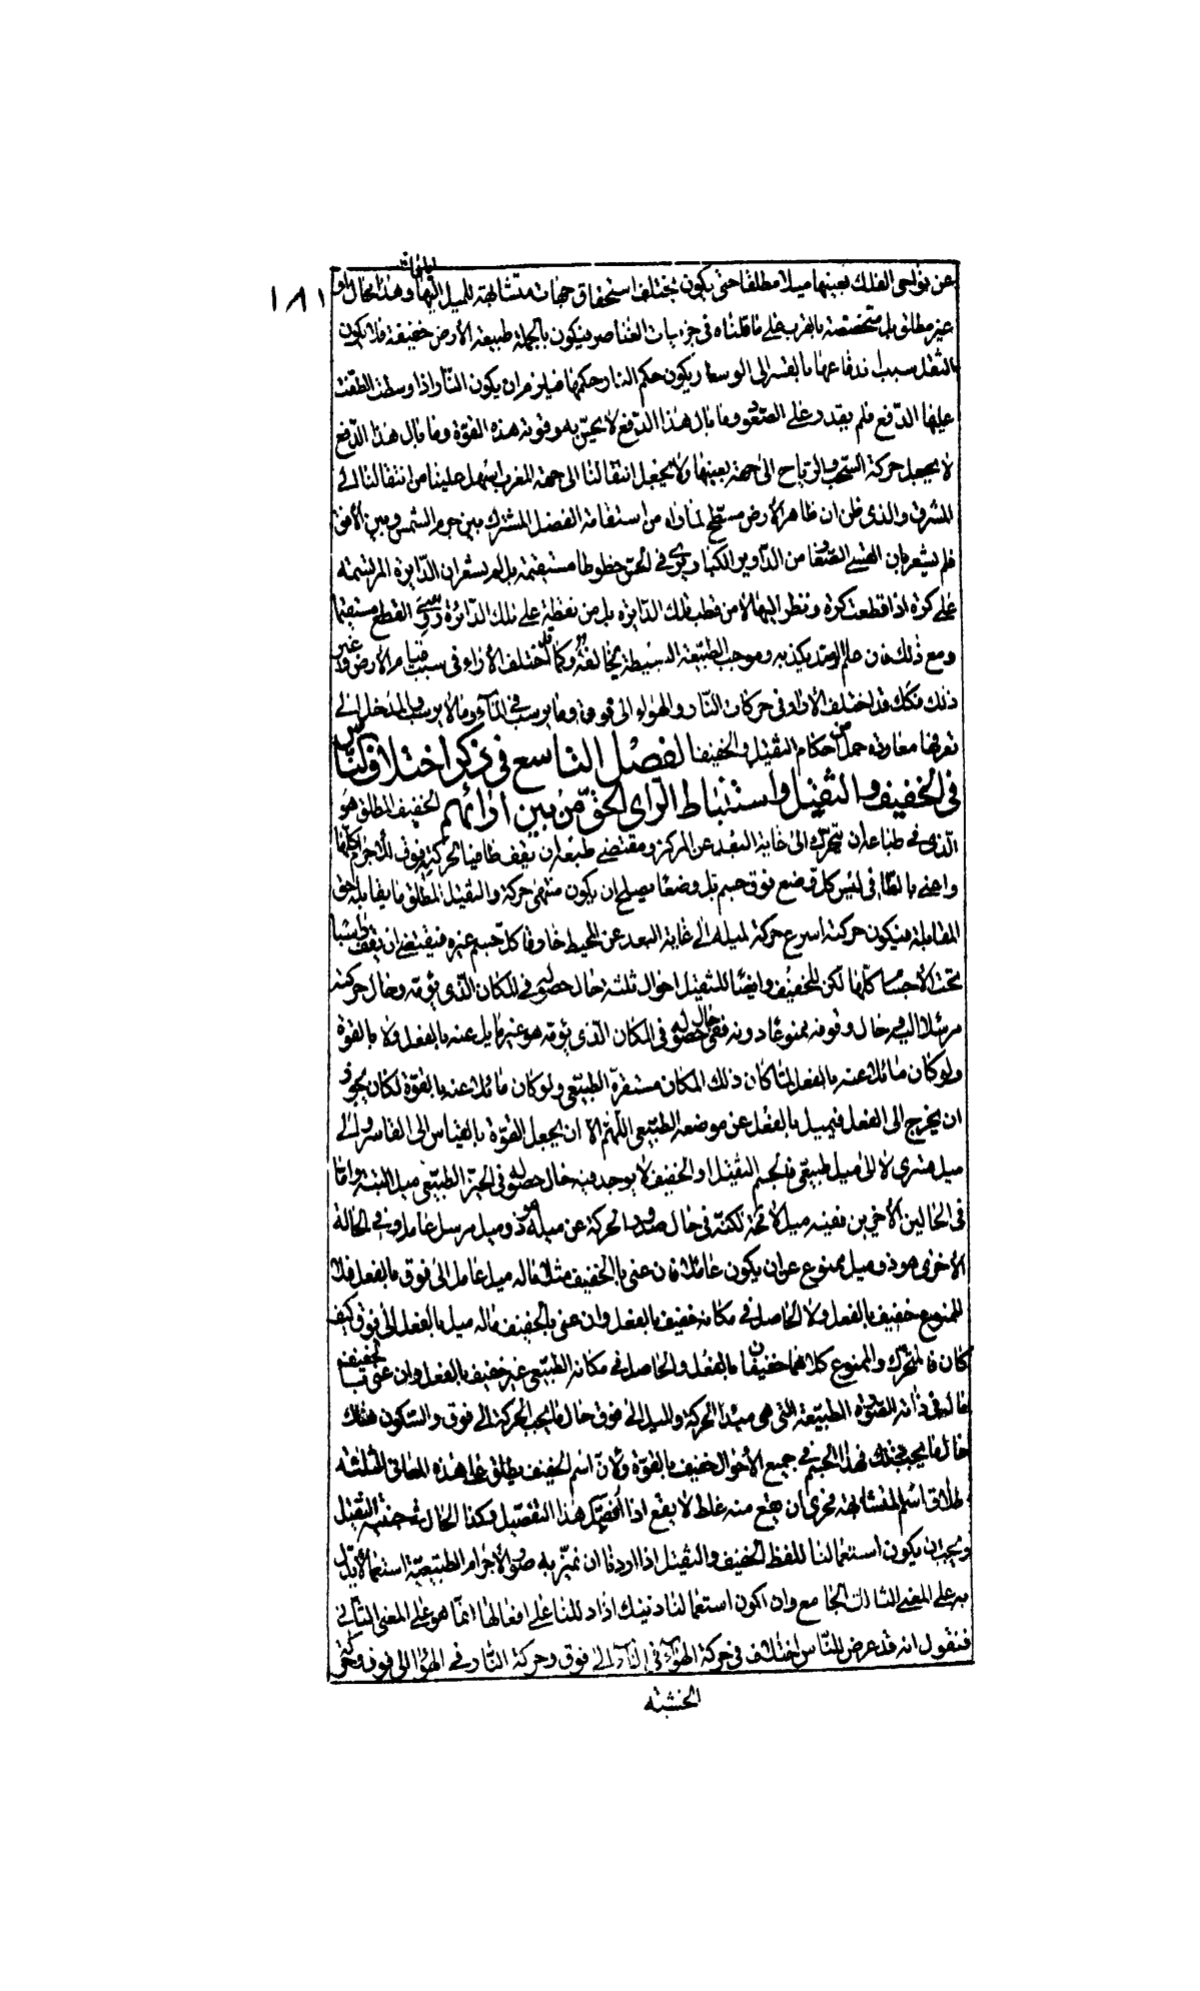 ١٨١
عن نواحى الفلك بعينها ميلا مطلقا حتى يكون يختلف استحقاق جهات متشابهة للميل اليها وهذا محال او
غير مطلق بل متخصصة بالقرب على ما قلناه فى جزئيات العناصر فيكون بالجملة طبيعة الأرض خفيفة فلا يكون
الثقل سببا ندفاعها بالقسر الى الوسط ويكون حكم النار حكمها فيلزم ان يكون النار اذا وسطت الطفت
عليها الدفع فلم يقدر على الصعود وما بال هذا الدفع لا يحس به وقوته هذه القوة وما بال هذا الدفع
لا يجعل حركة السحب والرياح الى جهة بعينها ولا يجعل انتقالنا الى جهة المغرب اسهل علينا من انتقالنا الى
المشرق والذى ظن ان ظاهر الأرض مسطح لما راه من استقامة الفصل المشترك بين جرم الشمس وبين الافق
فلم يشعر بان القسى الصغار من الدواير الكبار ويرى فى الحق خطوطا مستقيمة بل لم يشعر ان الدايرة المرتسمة
على كرة اذا قطعت كرة ونظر اليها لا من قطب تلك الدايرة بل من نقطة على تلك الدائرة رؤى القطع مستقيما
ومع ذلك فان علم الرصد يكذبه وموجب الطبيعة البسيطة يخالفه وكما قد اختلف الآراء فى سبب قيام الأرض وغير
ذلك فكك قد اختلف الآراء فى حركات النار والهواء الى فوق وما يرسب فى الماء وما لا يرسب والمدخل الى
تعرفها معاودة جمل من احكام الثقيل والخفيف الفصل التاسع فى ذكر اختلاف الناس
فى الخفيف والثقيل واستنباط الراى الحق من بين ارائهم الخفيف المطلق هو
الذى فى طباعه ان يتحرك الى غاية البعد عن المركز ومقتضى طبعه ان يقف طافيا بحركته فوق الأجرام كلها
واعنى بالطافى ليس كل وضع فوق جسم بل وضعا يصلح ان يكون منتهى حركة والثقيل المطلق ما يقابله حق
المقابلة فيكون حركته اسرع حركة لميله الى غاية البعد عن المحيط خارقا كل جسم غيره فيقتضى ان يقف راسبا
تحت الأجسام كلها لكن للخفيف وايضا للثقيل احوال ثلثة حال حصوله فى المكان الذى يؤمه وحال حركته
مرسلا اليه وحال وقوفه ممنوعا دونه ففى حال حصوله فى المكان الذى يؤمه هو غير مايل عنه بالفعل ولا بالقوة
ولو كان مائلا عنه بالفعل لما كان ذلك المكان مستقره الطبيعى ولو كان مائلا عنه بالقوة لكان يجوز
ان يخرج الى الفعل فيميل بالفعل عن موضعه الطبيعى اللهم الا ان يجعل القوة بالقياس الى القاسر والى
ميل قسرى لا الى ميل طبيعى فالجسم الثقيل او الخفيف لا يوجد فيه حال حصوله فى الحيز الطبيعى ميل البتة واما
فى الحالين الأخريين ففيه ميل لا محالة لكنه فى حال صدور الحركة عن ميله هو ذو ميل مرسل عامل وفى الحالة
الاخرى هو ذو ميل ممنوع عن ان يكون عاملا فان عنى بالخفيف مثلا ماله ميل عامل الى فوق بالفعل فلا
الممنوع خفيف بالفعل ولا الحاصل فى مكانه خفيف بالفعل وان عنى بالخفيف ماله ميل بالفعل الى فوق كيف
كان فالمتحرك والممنوع كلاهما خفيفان بالفعل والحاصل فى مكانه الطبيعى غير خفيف بالفعل وان عنى بالخفيف
ماله فى ذاته الصورة الطبيعية التى هى مبدأ الحركة والميل الى فوق حال ما يجب الحركة الى فوق والسكون هناك
حال ما يجب ذلك فهذا الجسم فى جميع الأحوال خفيف بالقوة ولأن اسم الخفيف يطلق على هذه المعانى الثلثة
اطلاق اسم المتشابهة فحرى ان يقع منه غلط لا يقع اذا فصل هذا التفصيل وكذا الحال فى جنبة الثقيل
ويجب ان يكون استعمالنا للفظ الخفيف والثقيل اذا اردنا ان نميز به صور الأجرام الطبيعية استعمالا يدل
به على المعنى الثالث الجامع وان اكون استعمالنا ذينك اذا دللنا على افعالها انما هو على المعنى الثانى
فنقول انه قد عرض للناس اختلاف فى حركة الهواء فى الماء الى فوق وحركة النار فى الهواء الى فوق وحركة
الخشبة